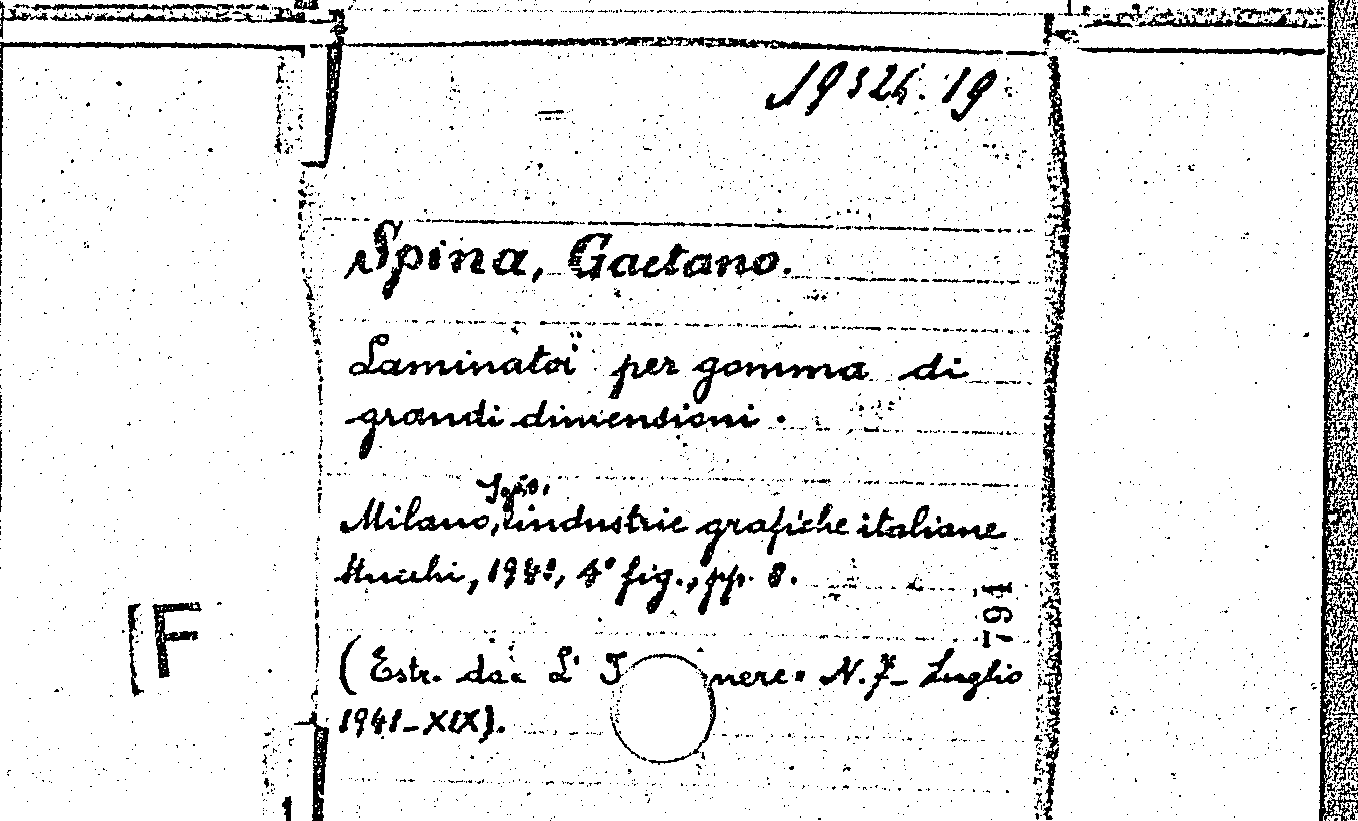 19324.19
Spina, Gaetano.
Laminatoi per gomma di
grandi dimensioni.
Milano, industrie grafiche italiane
Stucchi, 4° fig., pp. 8.
(Estr. da: L' nere. N. 7- Luglio
1941-XIX).
791
F